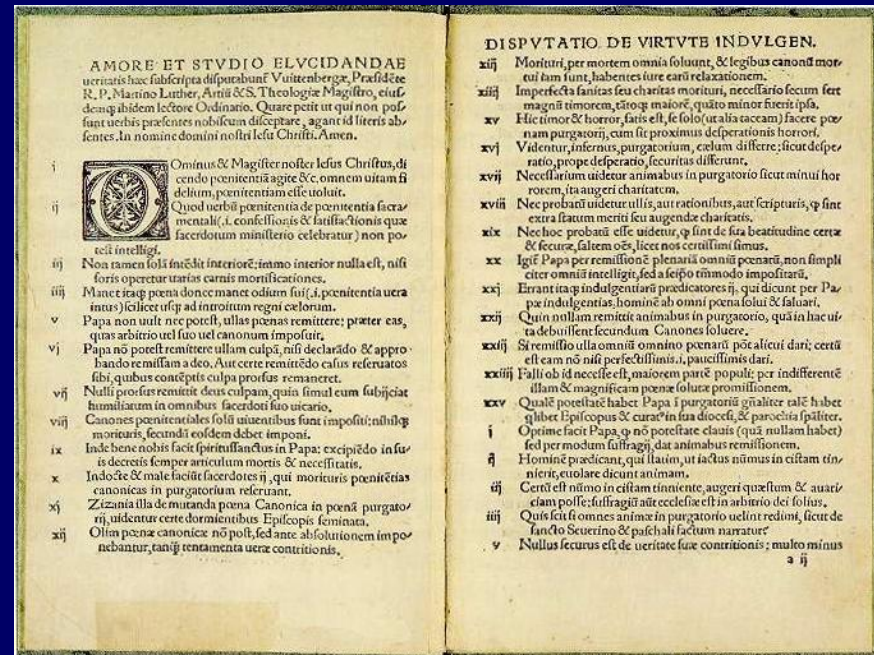 AMORE ET STVDIO ELVCIDANDAE
ueritatis hæc subscripta disputabunť Vuittenbergæ, Præsidēte
R. P. Martino Luther, Artiū & S. Theologiæ Magistro, eius-
demq; ibidem lectore Ordinario. Quare petit ut qui non pos-
sunt uerbis præsentes nobiscum disceptare, agant id literis ab-
sentes. In nomine domini nostri Iesu Christi. Amen.
i Ominus & Magister noster Iesus Christus, di
cendo pœnitentiā agite &c. omnem uitam fi
delium, pœnitentiam esse uoluit.
ij Quod uerbū pœnitentia de pœnitentia sacra-
mentali (.i. confessionis & satisfactionis quæ
sacerdotum ministerio celebratur) non po-
test intelligi.
iij Non tamen solā intēdit interiorē: immo interior nulla est, nisi
foris operetur uarias carnis mortificationes.
iiij Manet itaq; pœna donec manet odium sui (.i. pœnitentia uera
intus) scilicet usq; ad introitum regni cælorum.
v Papa non uult nec potest, ullas pœnas remittere: præter eas,
quas arbitrio uel suo uel canonum imposuit.
vj Papa nō potest remittere ullam culpā, nisi declarādo & appro-
bando remissam a deo. Aut certe remittēdo casus reseruatos
sibi, quibus contēptis culpa prorsus remaneret.
vij Nulli prorsus remittit deus culpam, quin simul eum subijciat
humiliatum in omnibus sacerdoti suo uicario.
viij Canones pœnitentiales solū uiuentibus sunt impositi: nihilq;
morituris, secundū eosdem debet imponi.
ix Inde bene nobis facit spiritussanctus in Papa: excipiēdo in su-
is decretis semper articulum mortis & necessitatis.
x Indocte & male faciūt sacerdotes ij, qui morituris pœnitētias
canonicas in purgatorium reseruant.
xj Zizania illa de mutanda pœna Canonica in pœnā purgato-
rij, uidentur certe dormientibus Episcopis seminata.
xij Olim pœnæ canonicæ nō post, sed ante absolutionem impo-
nebantur, tanq̄ tentamenta ueræ contritionis.
DISPVTATIO DE VIRTVTE INDVLGEN.
xiij Morituri, per mortem omnia soluunt, & legibus canonū mor-
tui iam sunt, habentes iure earū relaxationem.
xiiij Imperfecta sanitas seu charitas morituri, necessario secum fert
magnū timorem, tātoq; maiorē, quāto minor fuerit ipsa.
xv Hic timor & horror, satis est, se solo (ut alia taceam) facere pœ-
nam purgatorij, cum sit proximus desperationis horrori.
xvj Videntur, infernus, purgatorium, cælum differre: sicut despe-
ratio, prope desperatio, securitas differunt.
xvij Necessarium uidetur animabus in purgatorio sicut minui hor
rorem, ita augeri charitatem.
xviij Nec probatū uidetur ullis, aut rationibus, aut scripturis, q̄ sint
extra statum meriti seu augendæ charitatis.
xix Nec hoc probatū esse uidetur, q̄ sint de sua beatitudine certæ
& securæ, saltem oēs, licet nos certissimi simus.
xx Igiť Papa per remissionē plenariā omniū pœnarū, non simpli
citer omniū intelligit, sed a seipso tm̄modo impositarū.
xxj Errant itaq; indulgentiarū prædicatores ij, qui dicunt per Pa-
pæ indulgentias, hominē ab omni pœna solui & saluari.
xxij Quin nullam remittit animabus in purgatorio, quā in hac ui-
ta debuissent secundum Canones soluere.
xxiij Si remissio ulla omniū omnino pœnarū pōt alicui dari; certū
est eam nō nisi perfectissimis .i. paucissimis dari.
xxiiij Falli ob id necesse est, maiorem partē populi: per indifferentē
illam & magnificam pœnæ solutæ promissionem.
xxv Qualē potestatē habet Papa ī purgatoriū gn̄aliter talē habet
q̄libet Episcopus & curat9 in sua diocesi, & parochia spāliter.
i Optime facit Papa, q̄ nō potestate clauis (quā nullam habet)
sed per modum suffragij, dat animabus remissionem.
ij Hominē prædicant, qui statim, ut iactus nūmus in cistam tin-
nierit, euolare dicunt animam.
iij Certū est nūmo in cistam tinniente, augeri quæstum & auari-
ciam posse; suffragiū aūt ecclesiæ est in arbitrio dei solius.
iiij Quis scit si omnes animæ in purgatorio uelint redimi, sicut de
sancto Seuerino & paschali factum narratur.
v Nullus securus est de ueritate suæ contritionis; multo minus
a ij